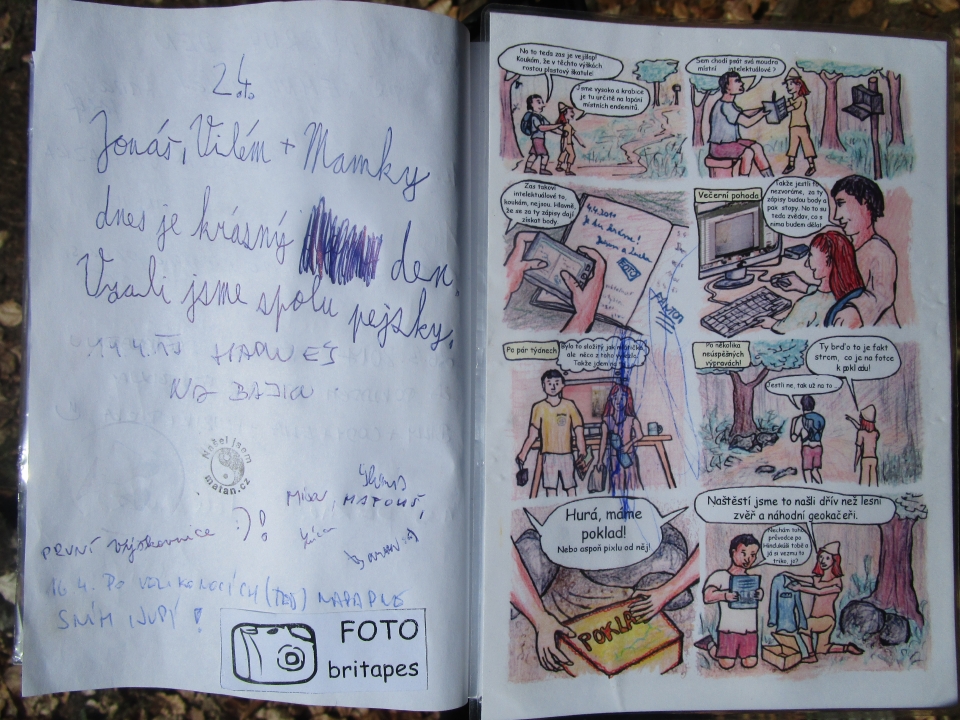 2.4.
Jonáš, Vilém + Mamky
dnes je krásný den.
Vzali jsme spolu pejsky.
NA
Našel jsem
matan.cz
Míša, MATOUŠ,
PRVNÍ výškovnice :)!
16.4. Po VELIKONOCÍCH (TEĎ) NAPADNE
SNÍH JUPÍ!
FOTO
britapes
No to teda zas je vejšlap!
Koukám, že v těchto výškách
rostou plastový škatule!
Jsme vysoko a krabice
je tu určitě na lapání
místních endemitů.
Sem chodí psát svá moudra
místní intelektuálové?
Zas takoví
intelektuálové to,
koukám, nejsou. Hlavně,
že se za ty zápisy dají
získat body.
4.4.2010
FOTO
Večerní pohoda
Takže jestli to
nezvoráme, za ty
zápisy budou body a
pak stopy. No to su
teda zvědav, co s
nima budem dělat.
Po pár týdnech
Bylo to složitý jak
ale něco z toho
Takže jdem na
Po několika
neúspěšných
výpravách!
Jestli ne, tak už na to...
Ty brďo to je fakt
strom, co je na fotce
k pokladu!
Hurá, máme
poklad!
Nebo aspoň pixlu od něj!
POKLAD
Naštěstí jsme to našli dřív než lesní
zvěř a náhodní geokačeři.
Nechám toho
průvodce po
Hindúkúši tobě a
já si vezmu to
triko, jo?